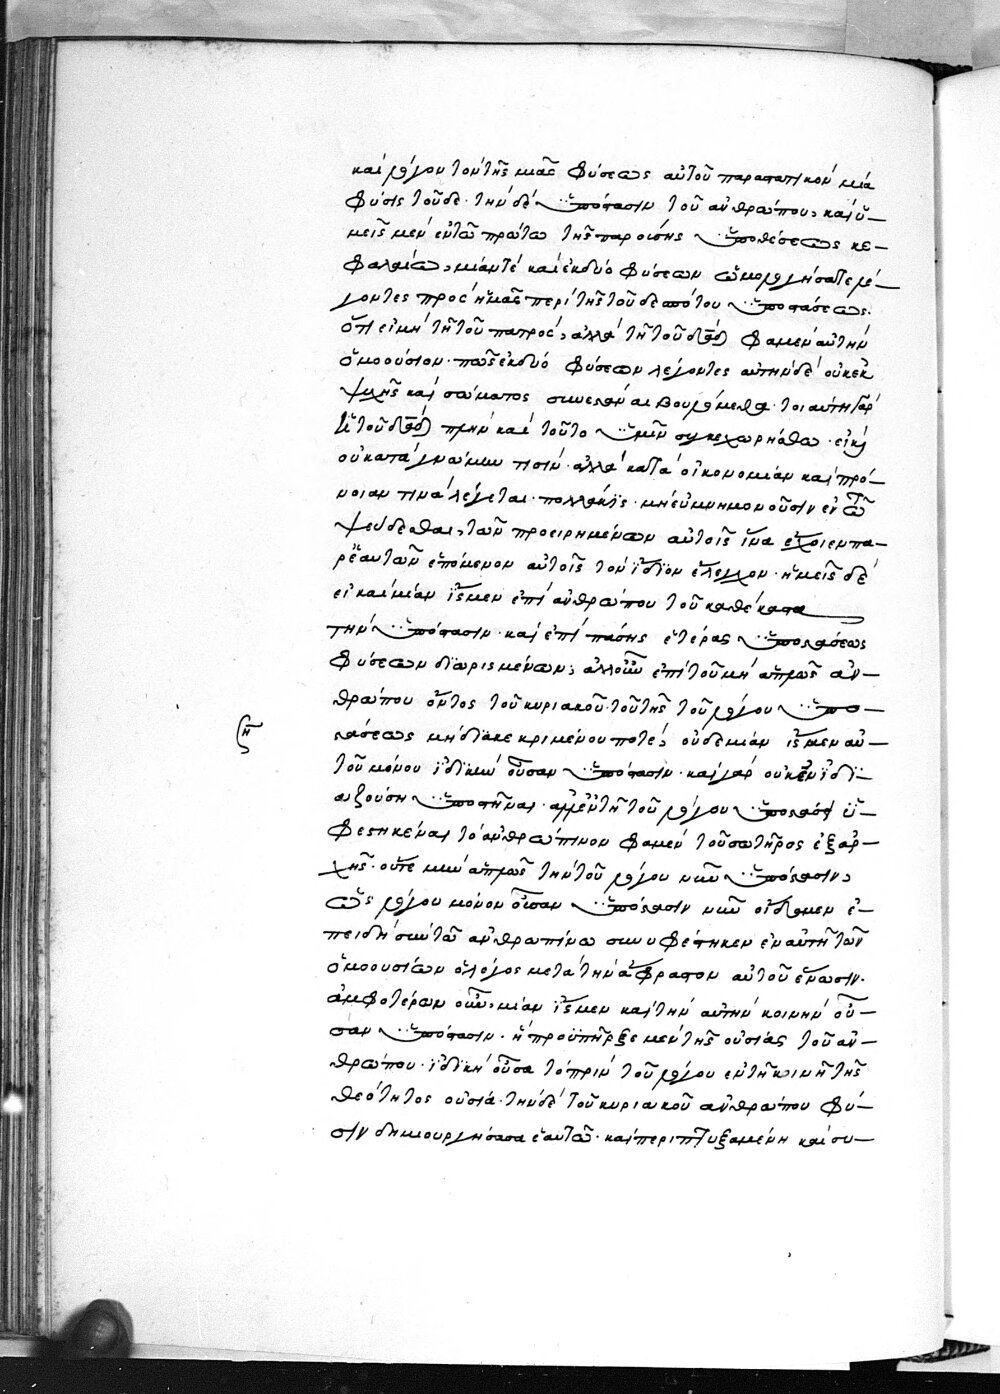 καὶ λόγου τὸν τῆς μιᾶς φύσεως αὐτοῦ παραπατικὸν μία
φύσις τοῦδε· τὴν δὲ ὑπόστασιν τοῦ ἀνθρώπου, καὶ ὑ-
μεῖς μὲν ἐν τῶ πρώτω τῆς παρούσης ὑποθέσεως κε-
φαλαίω, μίαν τὲ καὶ ἐκ δύο φύσεων ὡμολογήσατε λέ-
γοντες πρὸς ἡμᾶς περὶ τῆς τοῦ δεσπότου ὑποστάσεως.
ὅτι εἰ μὴ τῆ τοῦ πατρὸς, ἀλλὰ τῆ τοῦ δαδ φαμὲν αὐτὴν
ὁμοούσιον· πῶς ἐκ δύο φύσεων λέγοντες αὐτὴν δὲ οὐκ ἐκ
ψυχῆς καὶ σώματος συνεστάναι βουλόμεθα· τοιαύτη γὰρ
ἡ τοῦ δαδ πρὴν καὶ τοῦτο ὑμῖν συγκεχωρήσθω· εἰ καὶ
οὐ κατὰ γνώμην τισὶν· ἀλλὰ κατὰ οἰκονομίαν καὶ πρό-
νοιαν τινὰ λέγεται· πολλάκις· μὴ εὐμνημονοῦσιν ἐν τῶ
ψεύδεσθαι, τῶν προειρημένων αὐτοῖς ἵνα ἔχοιεν πα-
ρ' ἑαυτῶν ἑπόμενον αὐτοῖς τὸν ἴδιον ἔλεγχον· ἡμεῖς δὲ
εἰ καὶ μίαν ἴσμεν ἐπὶ ἀνθρώπου τοῦ καθέκαστα
τὴν ὑπόστασιν· καὶ ἐπὶ πάσης ἑτέρας ὑποστάσεως
φύσεων διωρισμένων, ἀλλ' οὖν ἐπὶ τοῦ μὴ ἁπλῶς ἀν-
θρώπου ὄντος τοῦ κυριακοῦ· τοῦ τῆς τοῦ λόγου ὑπο-
στάσεως μὴ διακεκριμένου ποτὲ, οὐδεμίαν ἴσμεν αὐ-
τοῦ μόνου ἰδικὴν οὖσαν ὑπόστασιν· καὶ γὰρ οὐκ ἐν ἰδι-
αζούση ὑποστῆναι· ἀλλ' ἐν τῆ τοῦ λόγου ὑποστάσει ὑ-
φεστηκέναι τὸ ἀνθρώπινον φαμὲν τοῦ σωτῆρος ἐξ ἀρ-
χῆς· οὔτε μὴν ἁπλῶς τὴν τοῦ λόγου νῦν ὑπόστασιν,
ὡς λόγου μόνον οὖσαν ὑπόστασιν νῦν οἴδαμεν ἐ-
πειδὴ σὺν τῶ ἀνθρωπίνω συνυφέστηκεν ἐν αὐτῆ τῶν
ὁμοουσίων ὁ λόγος μετὰ τὴν ἄφραστον αὐτοῦ ἕνωσιν.
ἀμφοτέρων οὖν, μίαν ἴσμεν καὶ τὴν αὐτὴν κοινὴν οὖ-
σαν ὑπόστασιν· ἣ προϋπῆρξε μὲν τῆς οὐσίας τοῦ ἀν-
θρώπου· ἰδικὴ οὖσα τὸ πρὶν τοῦ λόγου ἐν τῆ κοινῆ τῆς
θεότητος οὐσία· τὴν δὲ τοῦ κυριακοῦ ἀνθρώπου φύ-
σιν δημιουργήσασα ἑαυτῶ· καὶ περιπτυξαμένη καὶ συ-